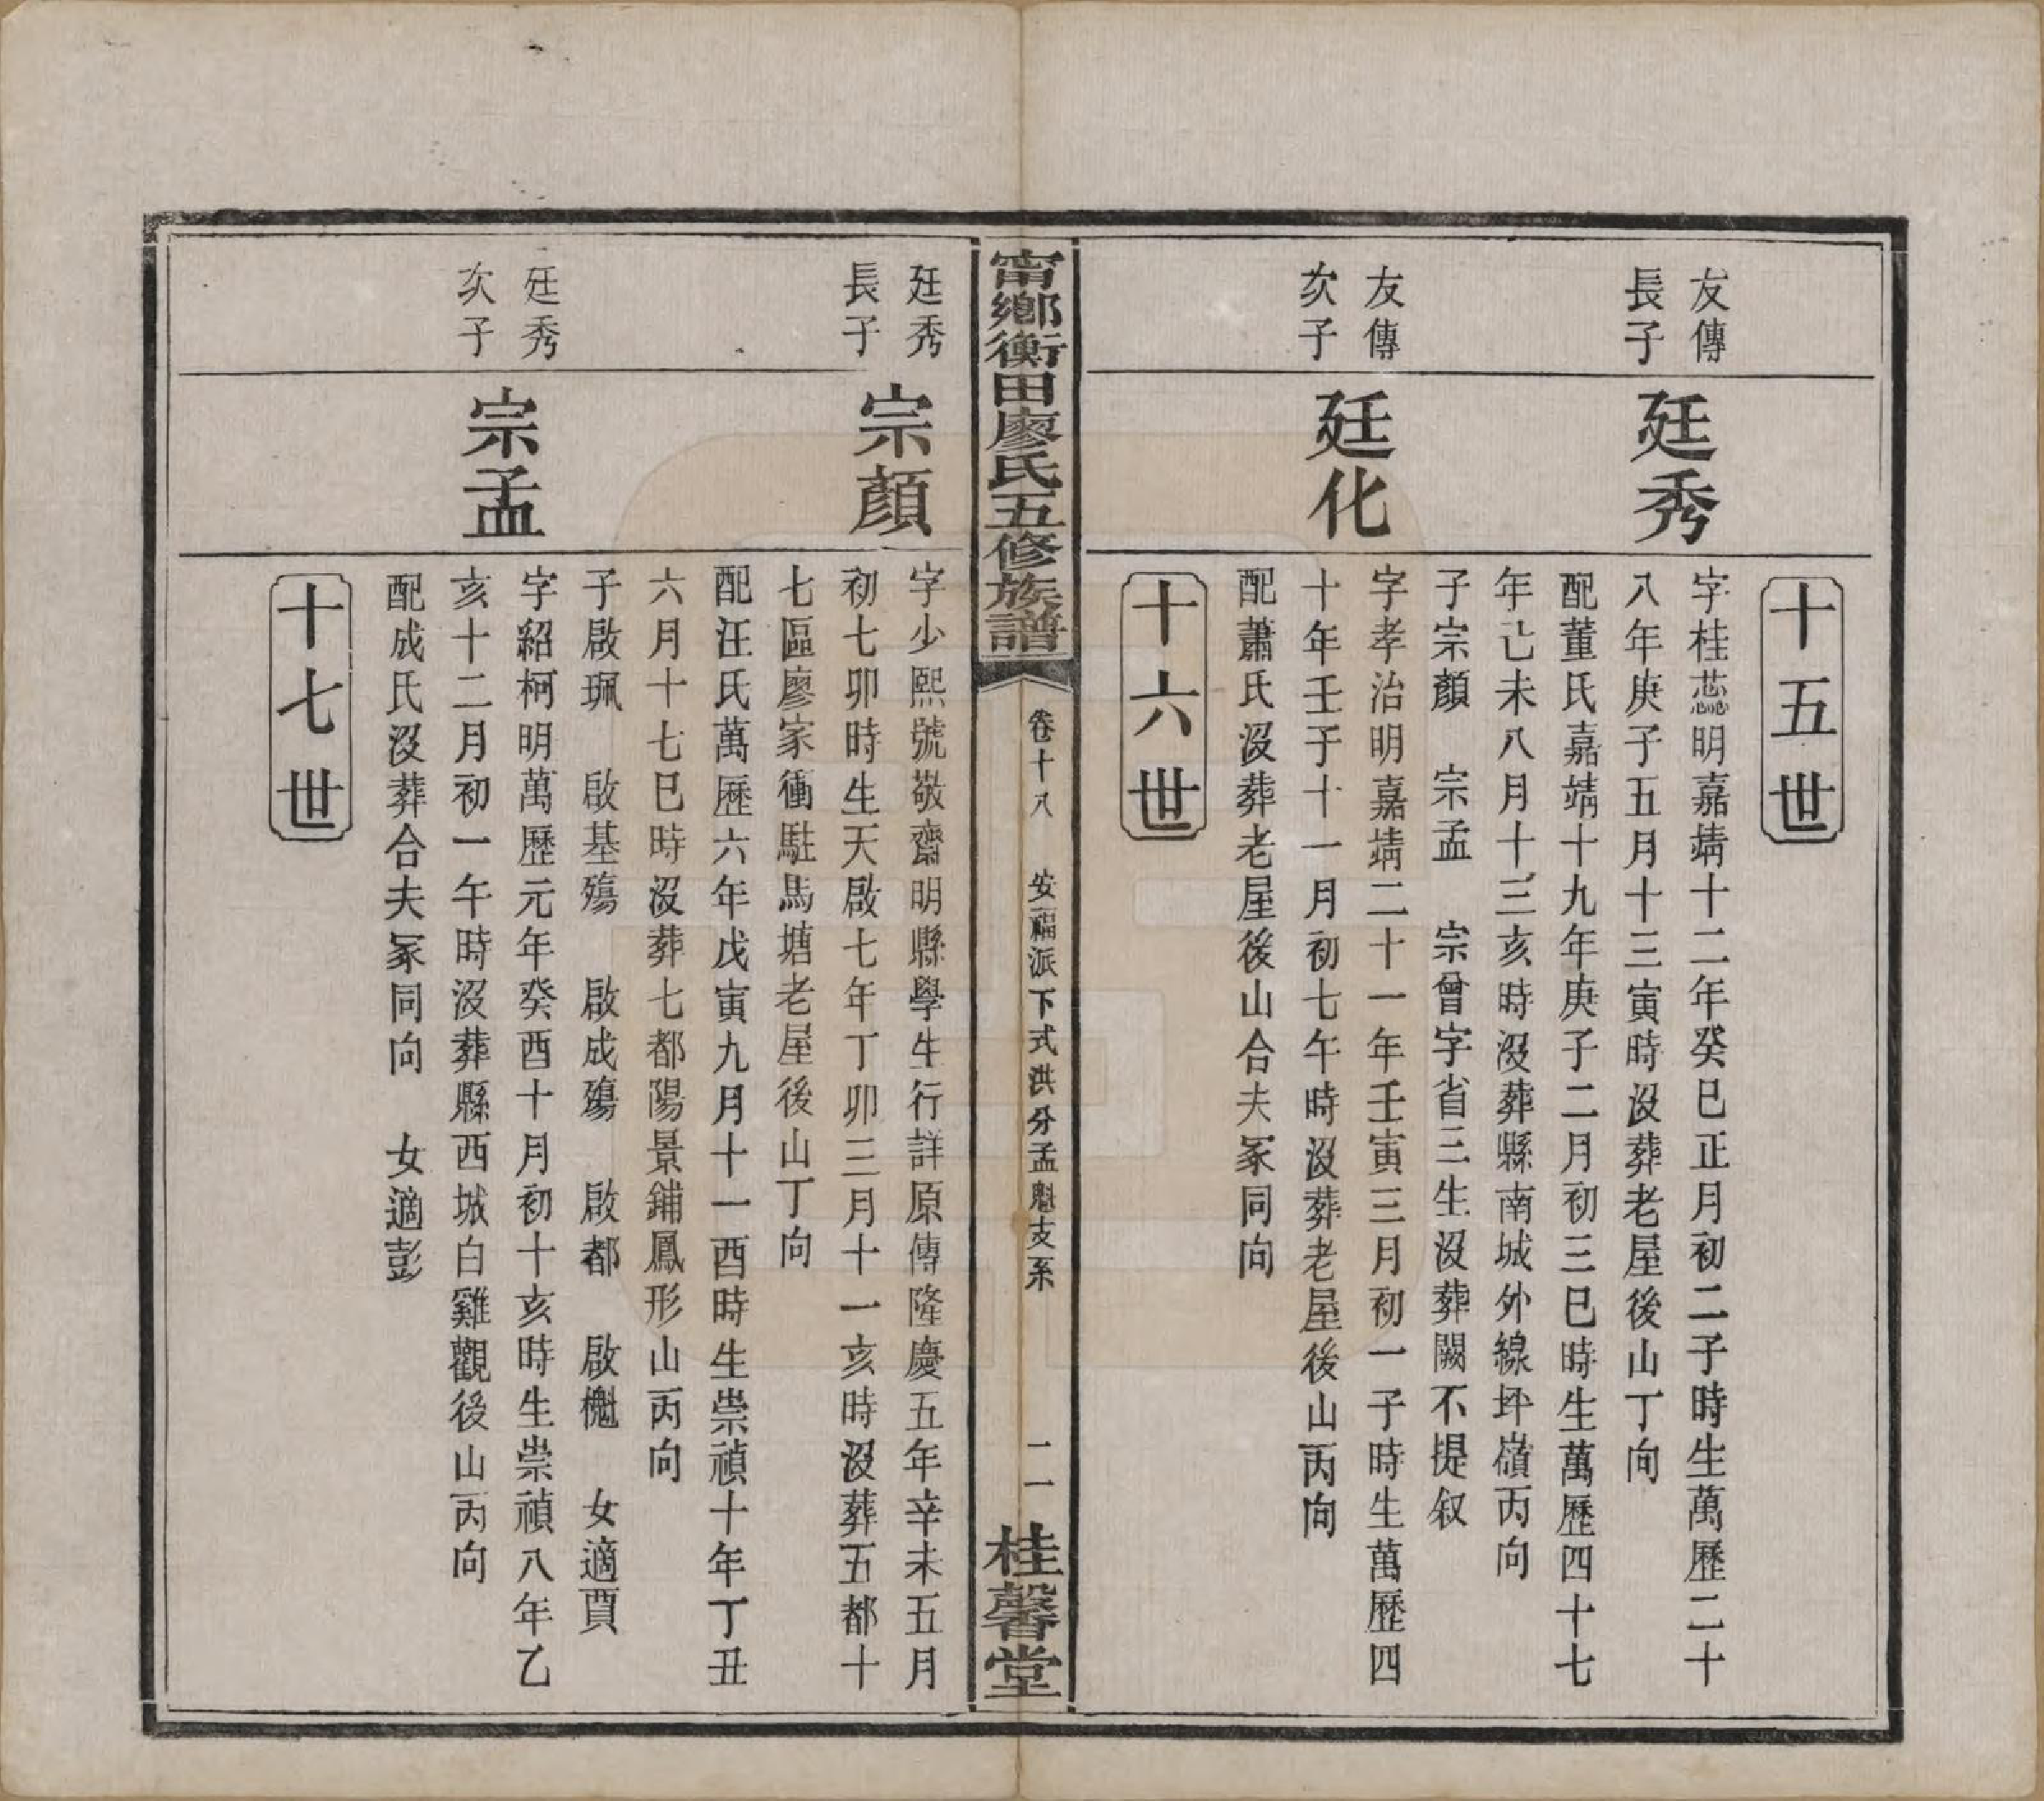 十五世
友傳
長子
廷秀
字桂蕊明嘉靖十二年癸巳正月初二子時生萬歷二十
八年庚子五月十三寅時沒葬老屋後山丁向
配董氏嘉靖十九年庚子二月初三巳時生萬歷四十七
年己未八月十三亥時沒葬縣南城外線坪嶺丙向
子宗顏　宗孟　宗曾字省三生沒葬闕不提叙
友傳
次子
廷化
字孝治明嘉靖二十一年壬寅三月初一子時生萬歷四
十年壬子十一月初七午時沒葬老屋後山丙向
配蕭氏沒葬老屋後山合夫冢同向
十六世
甯鄉衡田廖氏五修族譜
卷十八　安福派下式洪分孟魁支系
二一
桂馨堂
廷秀
長子
宗顏
字少熙號敬齋明縣學生行詳原傳隆慶五年辛未五月
初七卯時生天啟七年丁卯三月十一亥時沒葬五都十
七區廖家衝駐馬塘老屋後山丁向
配汪氏萬歷六年戊寅九月十一酉時生崇禎十年丁丑
六月十七巳時沒葬七都陽景鋪鳳形山丙向
子啟珮　啟基殤　啟成殤　啟都　啟櫆　女適賈
廷秀
次子
宗孟
字紹柯明萬歷元年癸酉十月初十亥時生崇禎八年乙
亥十二月初一午時沒葬縣西城白雞觀後山丙向
配成氏沒葬合夫冢同向　女適彭
十七世